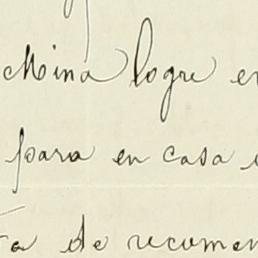 Mina logre en
para en casa
de recomen